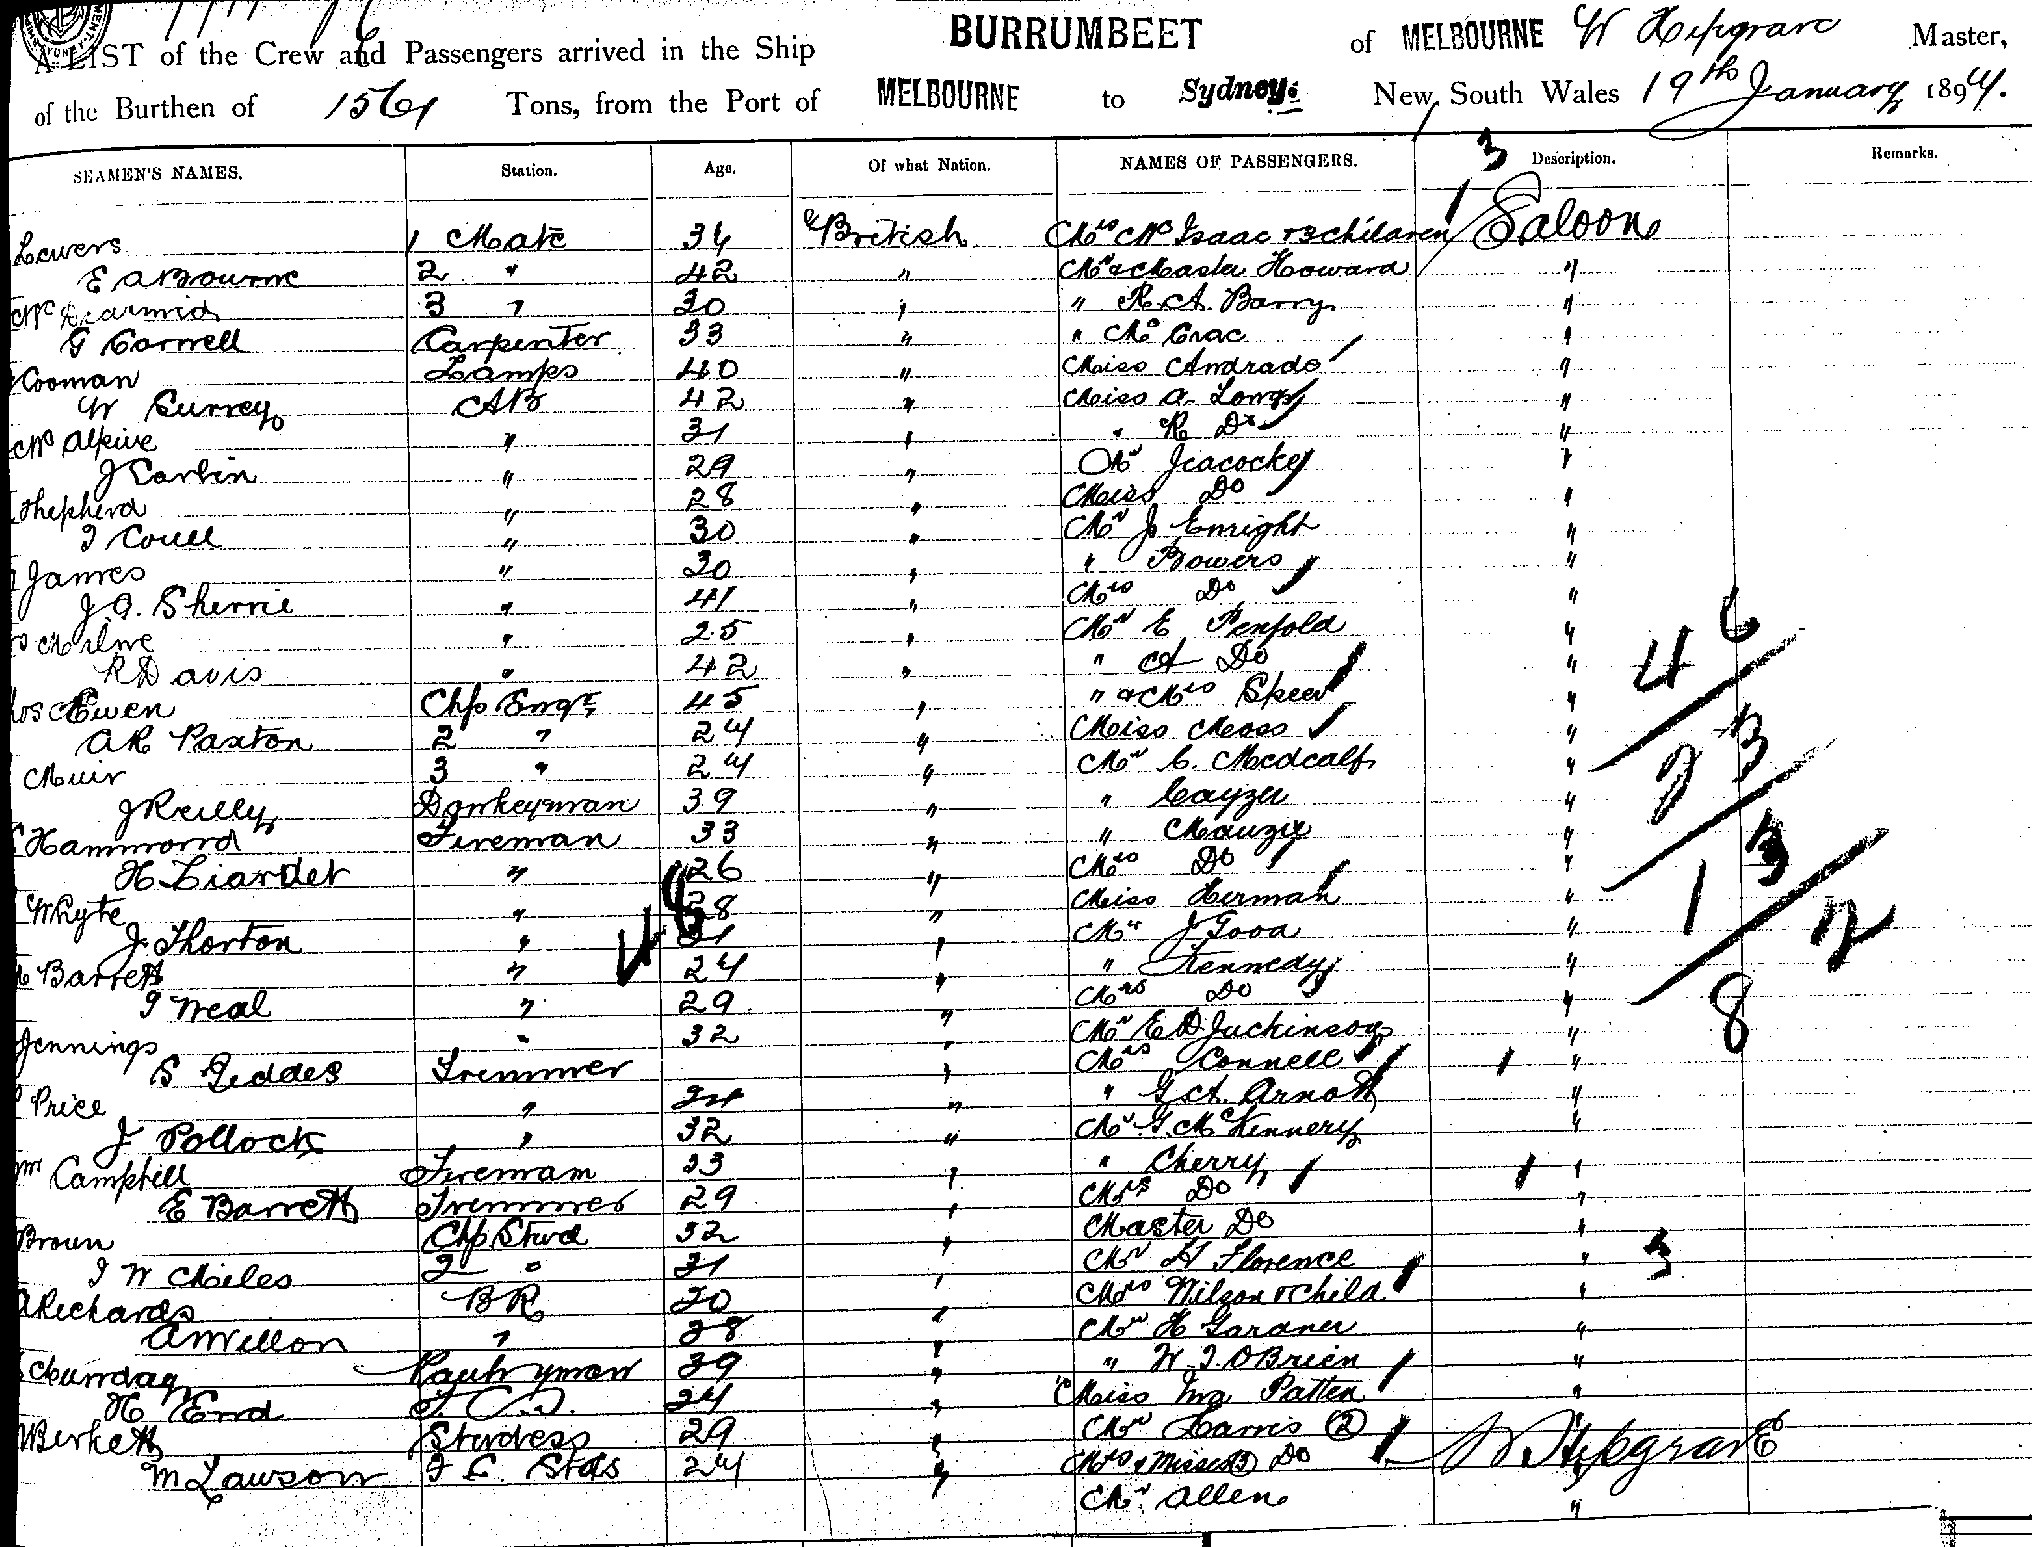 A LIST of the Crew and Passengers arrived in the Ship BURRUMBEET of MELBOURNE W Hipgrave Master,
of the Burthen of 1561 Tons, from the Port of MELBOURNE to Sydney: New South Wales 19th January 1894.
SEAMEN'S NAMES. Station. Age. Of what Nation. NAMES OF PASSENGERS. 3 Description. Remarks.
Lewers 1 Mate 34 British Mrs Mc Isaac & 3 children Saloon
E A Bourne 2 " 42 " Mr & Master Howard "
3 " 30 " " R.A. Barry "
G Carnell Carpenter 33 " " "
Cooman Lamps 40 " Miss Andrade "
W Surrey AB 42 " Miss A. Long "
McAlpine " 31 " " R Do "
J Corbin " 29 " Mr Jeacocke "
Shepherd " 28 " Miss Do "
J Coull " 30 " Mr J. Enright "
James " 30 " " Bowers "
J.A. Sherrie " 41 " Mrs Do "
Milne " 25 " Mr E Penfold "
R Davis " 42 " " A Do "
Ewen Chf Engr 45 " " & Mrs Speer "
A R Paxton 2 " 24 " Miss Moss "
Muir 3 " 24 " Mr C. Medcalf "
J Reilly Donkeyman 39 " " Cayzer "
Hammond Fireman 33 " " "
H Liardet " 26 " Mrs Do "
Whyte " 28 " Miss Herman "
J. Thorton " 21 " Mr "
Barrett " 24 " " Kennedy "
J Neal " 29 " Mrs Do "
Jennings " 32 " Mr "
S Geddes Trimmer " Mrs Connell "
Price " 24 " " Arnott "
J Pollock " 32 " Mr G. McKennery "
Campbell Fireman 33 " " Cherry "
E Barrett Trimmer 29 " Mrs Do "
Brown Chf Stwd 32 " Master Do "
J W Miles 2 " 21 " Mr H Florence "
A Richards BR 20 " Mrs Wilson & Child "
A Millon " 28 " Mr H Gardner "
Munday Pantryman 39 " " W. J. O'Brien "
H End 24 " Miss Patten "
Birkett Stwdess 29 " Mr Harris (2) "
M Lawson F C. Stds 24 " Mrs & Misses (3) Do W Hipgrave
Mr. Allen "
46
23
13
2
8
48
3